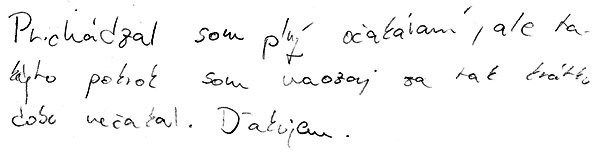 Prichádzal som plný očakávaní, ale ta-
kýto pokrok som naozaj za tak krátku
dobu nečakal. Ďakujem.